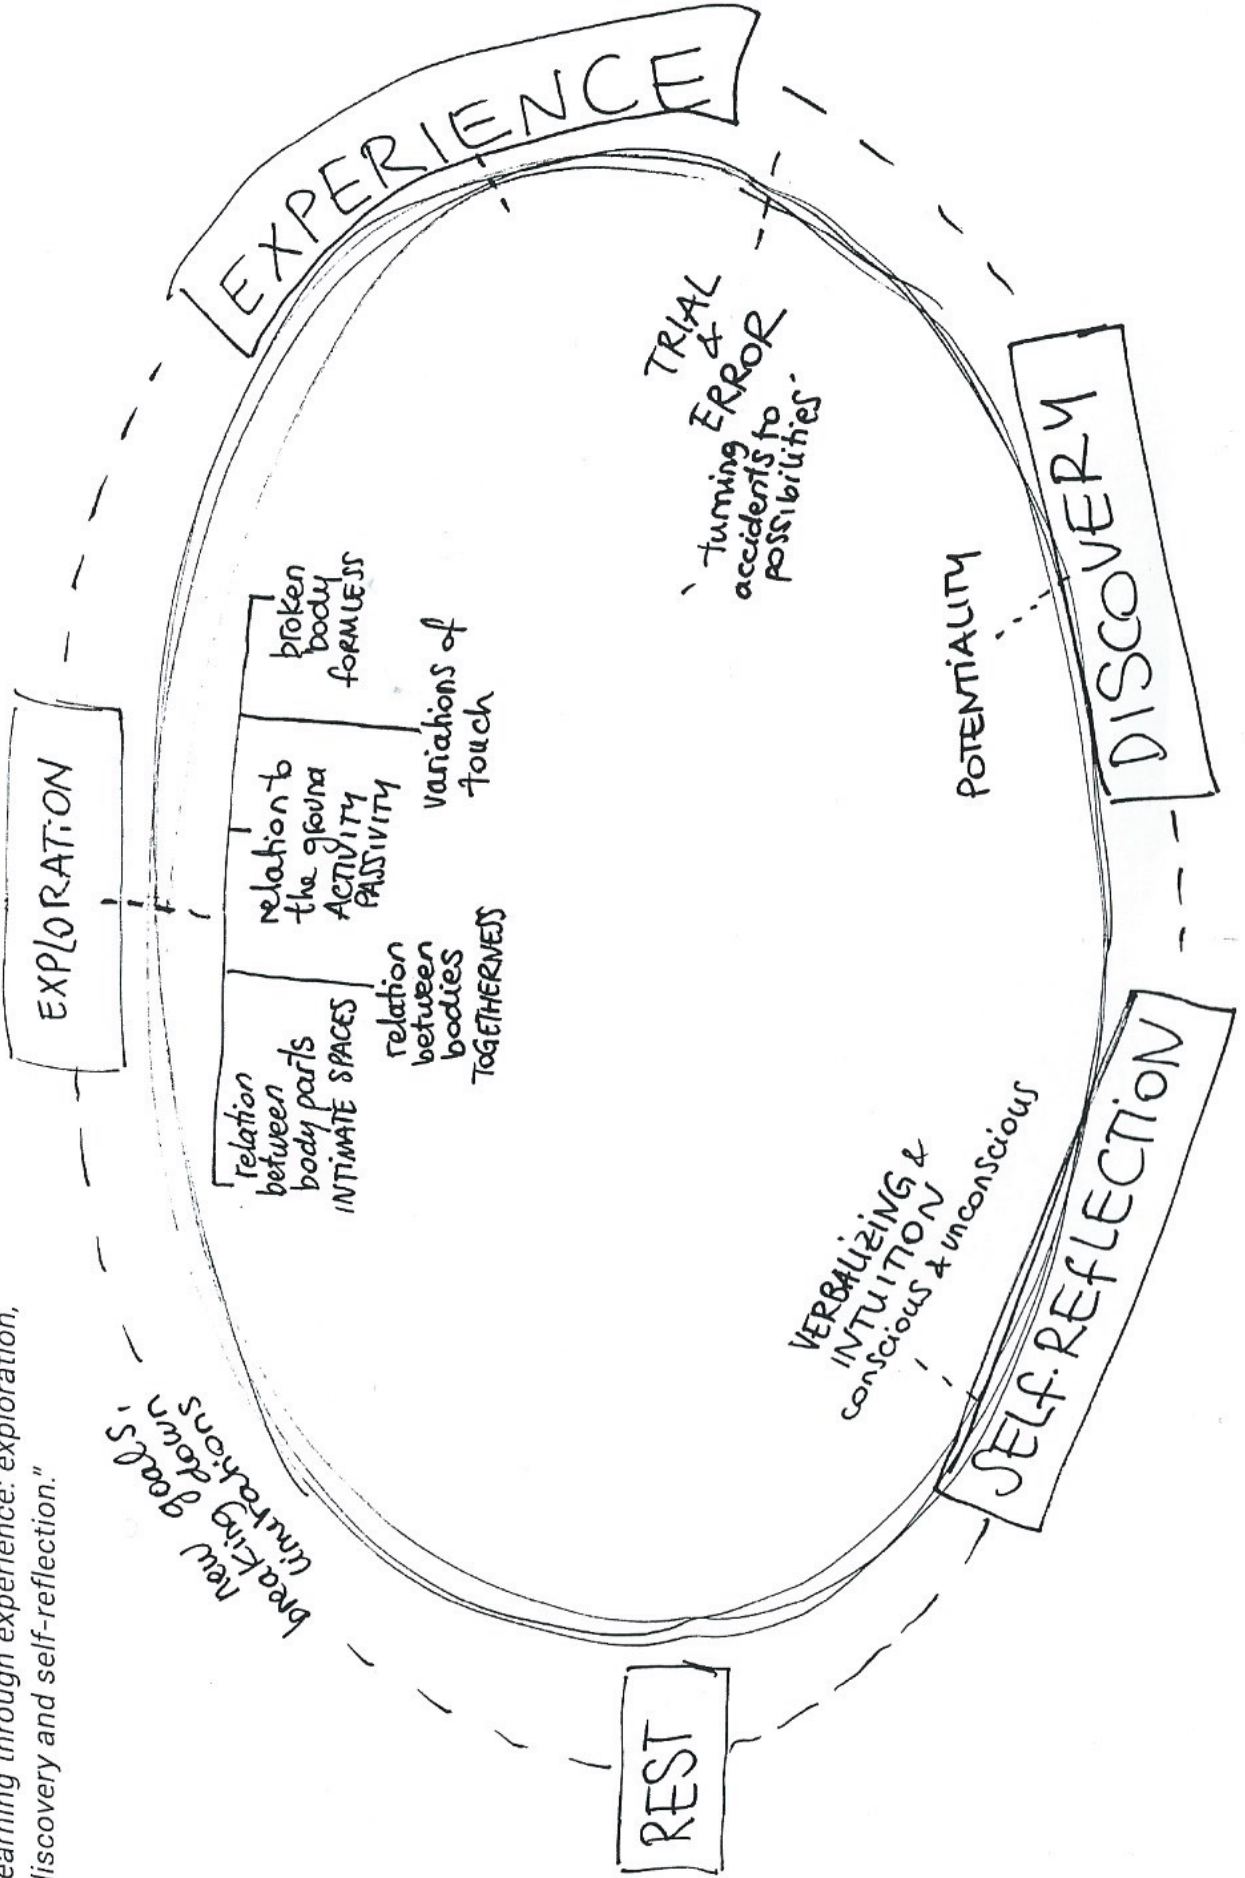 earning through experience: exploration,
liscovery and self-reflection."
EXPLORATION
relation
between
body parts
INTIMATE SPACES
relation
between
bodies
TOGETHERNESS
relation to
the ground
ACTIVITY
PASSIVITY
variations of
touch
broken
body
FORMLESS
EXPERIENCE
TRIAL
&
ERROR
turning
accidents to
possibilities
DISCOVERY
POTENTIALITY
SELF-REFLECTION
VERBALIZING &
INTUITION
conscious & unconscious
REST
new goals,
breaking down
limitations